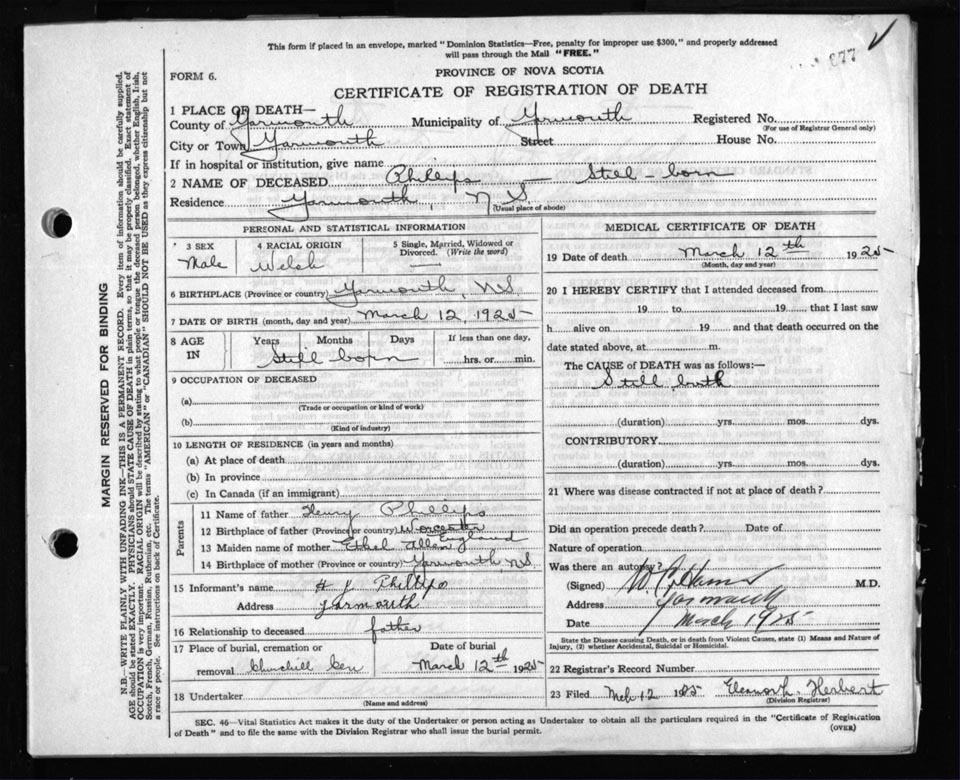 This form if placed in an envelope, marked "Dominion Statistics—Free, penalty for improper use $300," and properly addressed
will pass through the Mail "FREE."
877
FORM 6.
PROVINCE OF NOVA SCOTIA
CERTIFICATE OF REGISTRATION OF DEATH
1 PLACE OF DEATH—
County of Yarmouth Municipality of Yarmouth Registered No.
(For use of Registrar General only)
City or Town Yarmouth Street House No.
If in hospital or institution, give name
2 NAME OF DECEASED Phillips — Still-born
Residence Yarmouth, N S.
(Usual place of abode)
PERSONAL AND STATISTICAL INFORMATION
3 SEX 4 RACIAL ORIGIN 5 Single, Married, Widowed or
Divorced. (Write the word)
Male Welsh —
6 BIRTHPLACE (Province or country) Yarmouth, NS.
7 DATE OF BIRTH (month, day and year) March 12, 1925
8 AGE IN Years Months Days If less than one day,
Still born hrs. or min.
9 OCCUPATION OF DECEASED
(a)
(Trade or occupation or kind of work)
(b)
(Kind of industry)
10 LENGTH OF RESIDENCE (in years and months)
(a) At place of death
(b) In province
(c) In Canada (if an immigrant)
Parents
11 Name of father Henry Phillips
12 Birthplace of father (Province or country) Worcester
England
13 Maiden name of mother Ethel Allen
14 Birthplace of mother (Province or Country) Yarmouth NS.
15 Informant's name H Phillips
Address Yarmouth
16 Relationship to deceased father
17 Place of burial, cremation or
removal Churchill Cem
Date of burial
March 12th 1925
18 Undertaker
(Name and address)
MEDICAL CERTIFICATE OF DEATH
19 Date of death March 12th 1925
(Month, day and year)
20 I HEREBY CERTIFY that I attended deceased from
19 to 19 that I last saw
h alive on 19 and that death occurred on the
date stated above, at m.
The CAUSE of DEATH was as follows:—
Still birth
(duration) yrs. mos. dys.
CONTRIBUTORY
(duration) yrs. mos. dys.
21 Where was disease contracted if not at place of death?
Did an operation precede death? Date of
Nature of operation
Was there an autopsy?
(Signed) M.D.
Address Yarmouth
Date March 1925
State the Disease causing Death, or in death from Violent Causes, state (1) Means and Nature of
Injury, (2) whether Accidental, Suicidal or Homicidal.
22 Registrar's Record Number
23 Filed Mch 12 1925 Herbert
(Division Registrar)
SEC. 46—Vital Statistics Act makes it the duty of the Undertaker or person acting as Undertaker to obtain all the particulars required in the "Certificate of Registration
of Death" and to file the same with the Division Registrar who shall issue the burial permit.
(OVER)
MARGIN RESERVED FOR BINDING
N.B.—WRITE PLAINLY WITH UNFADING INK—THIS IS A PERMANENT RECORD. Every item of information should be carefully supplied.
AGE should be stated EXACTLY. PHYSICIANS should STATE CAUSE OF DEATH in plain terms, so that it may be properly classified. Exact statement of
OCCUPATION is very important. RACIAL ORIGIN will be described by stating to what people or tongue the deceased person belonged, whether English, Irish,
Scotch, French, German, Russian, Ruthenian, etc. The terms "AMERICAN" or "CANADIAN" SHOULD NOT BE USED as they express citizenship but not
a race or people. See instructions on back of Certificate.